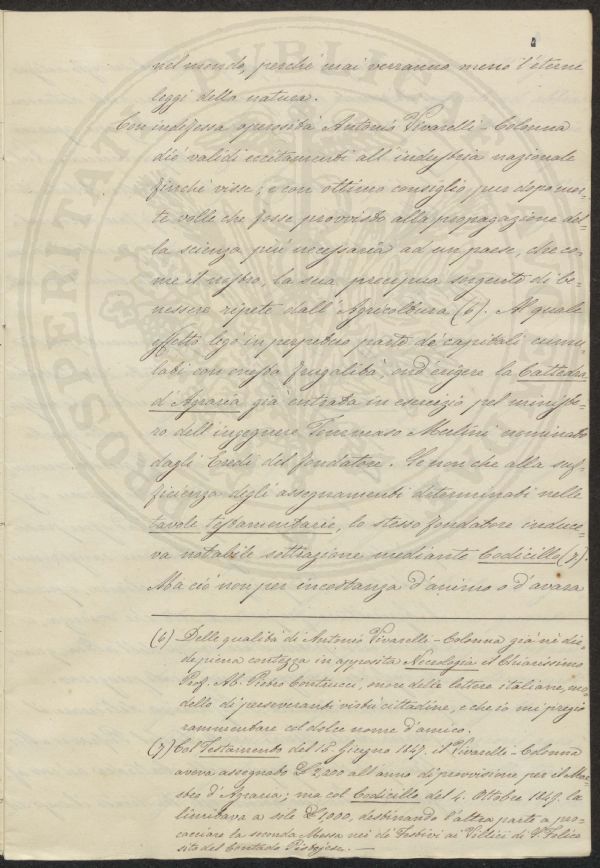 nel mondo, perchè mai verranno meno l'eterne
leggi della natura.
Con indefessa operosità Antonio Vivarelli-Colonna
diè validi eccitamenti all'industria nazionale
finchè visse; e con ottimo consiglio, pur dopo mor-
te volle che fosse provvisto alla propagazione del-
la scienza più necessaria ad un paese, che co-
me il nostro, la sua precipua sorgente di be-
nessere ripete dall'Agricoltura (6). Al quale
effetto legò in perpetuo parte de' capitali cumu-
lati con onesta frugalità, ond'erigere la Cattedra
d'Agraria già entrata in esercizio pel ministe-
ro dell'ingegnere Tommaso Merlini nominato
dagli Eredi del fondatore. Se non che alla suf-
ficienza degli assegnamenti determinati nelle
tavole testamentarie, lo stesso fondatore induce-
va notabile sottrazione mediante Codicillo (7).
Ma ciò non per incostanza d'animo o d'avara
(6) Delle qualità di Antonio Vivarelli-Colonna già ne diè
piena contezza in apposita Necrologia il Chiarissimo
Prof. Ab. Pietro Contrucci, onore delle lettere italiane, mo-
dello di perseveranti virtù cittadine, e che io mi pregio
rammentare col dolce nome d'amico.
(7) Col Testamento del 15. Giugno 1847. il Vivarelli-Colonna
aveva assegnato £ 2,200 all'anno di provvisione per il Mae-
stro d'Agraria; ma col Codicillo del 4. Ottobre 1849. la
limitava a sole £ 1,000, destinando l'altra parte a pro-
cacciare la seconda Messa nei dì Festivi ai Villici di S. Felice
sito del Contado Pistojese. —